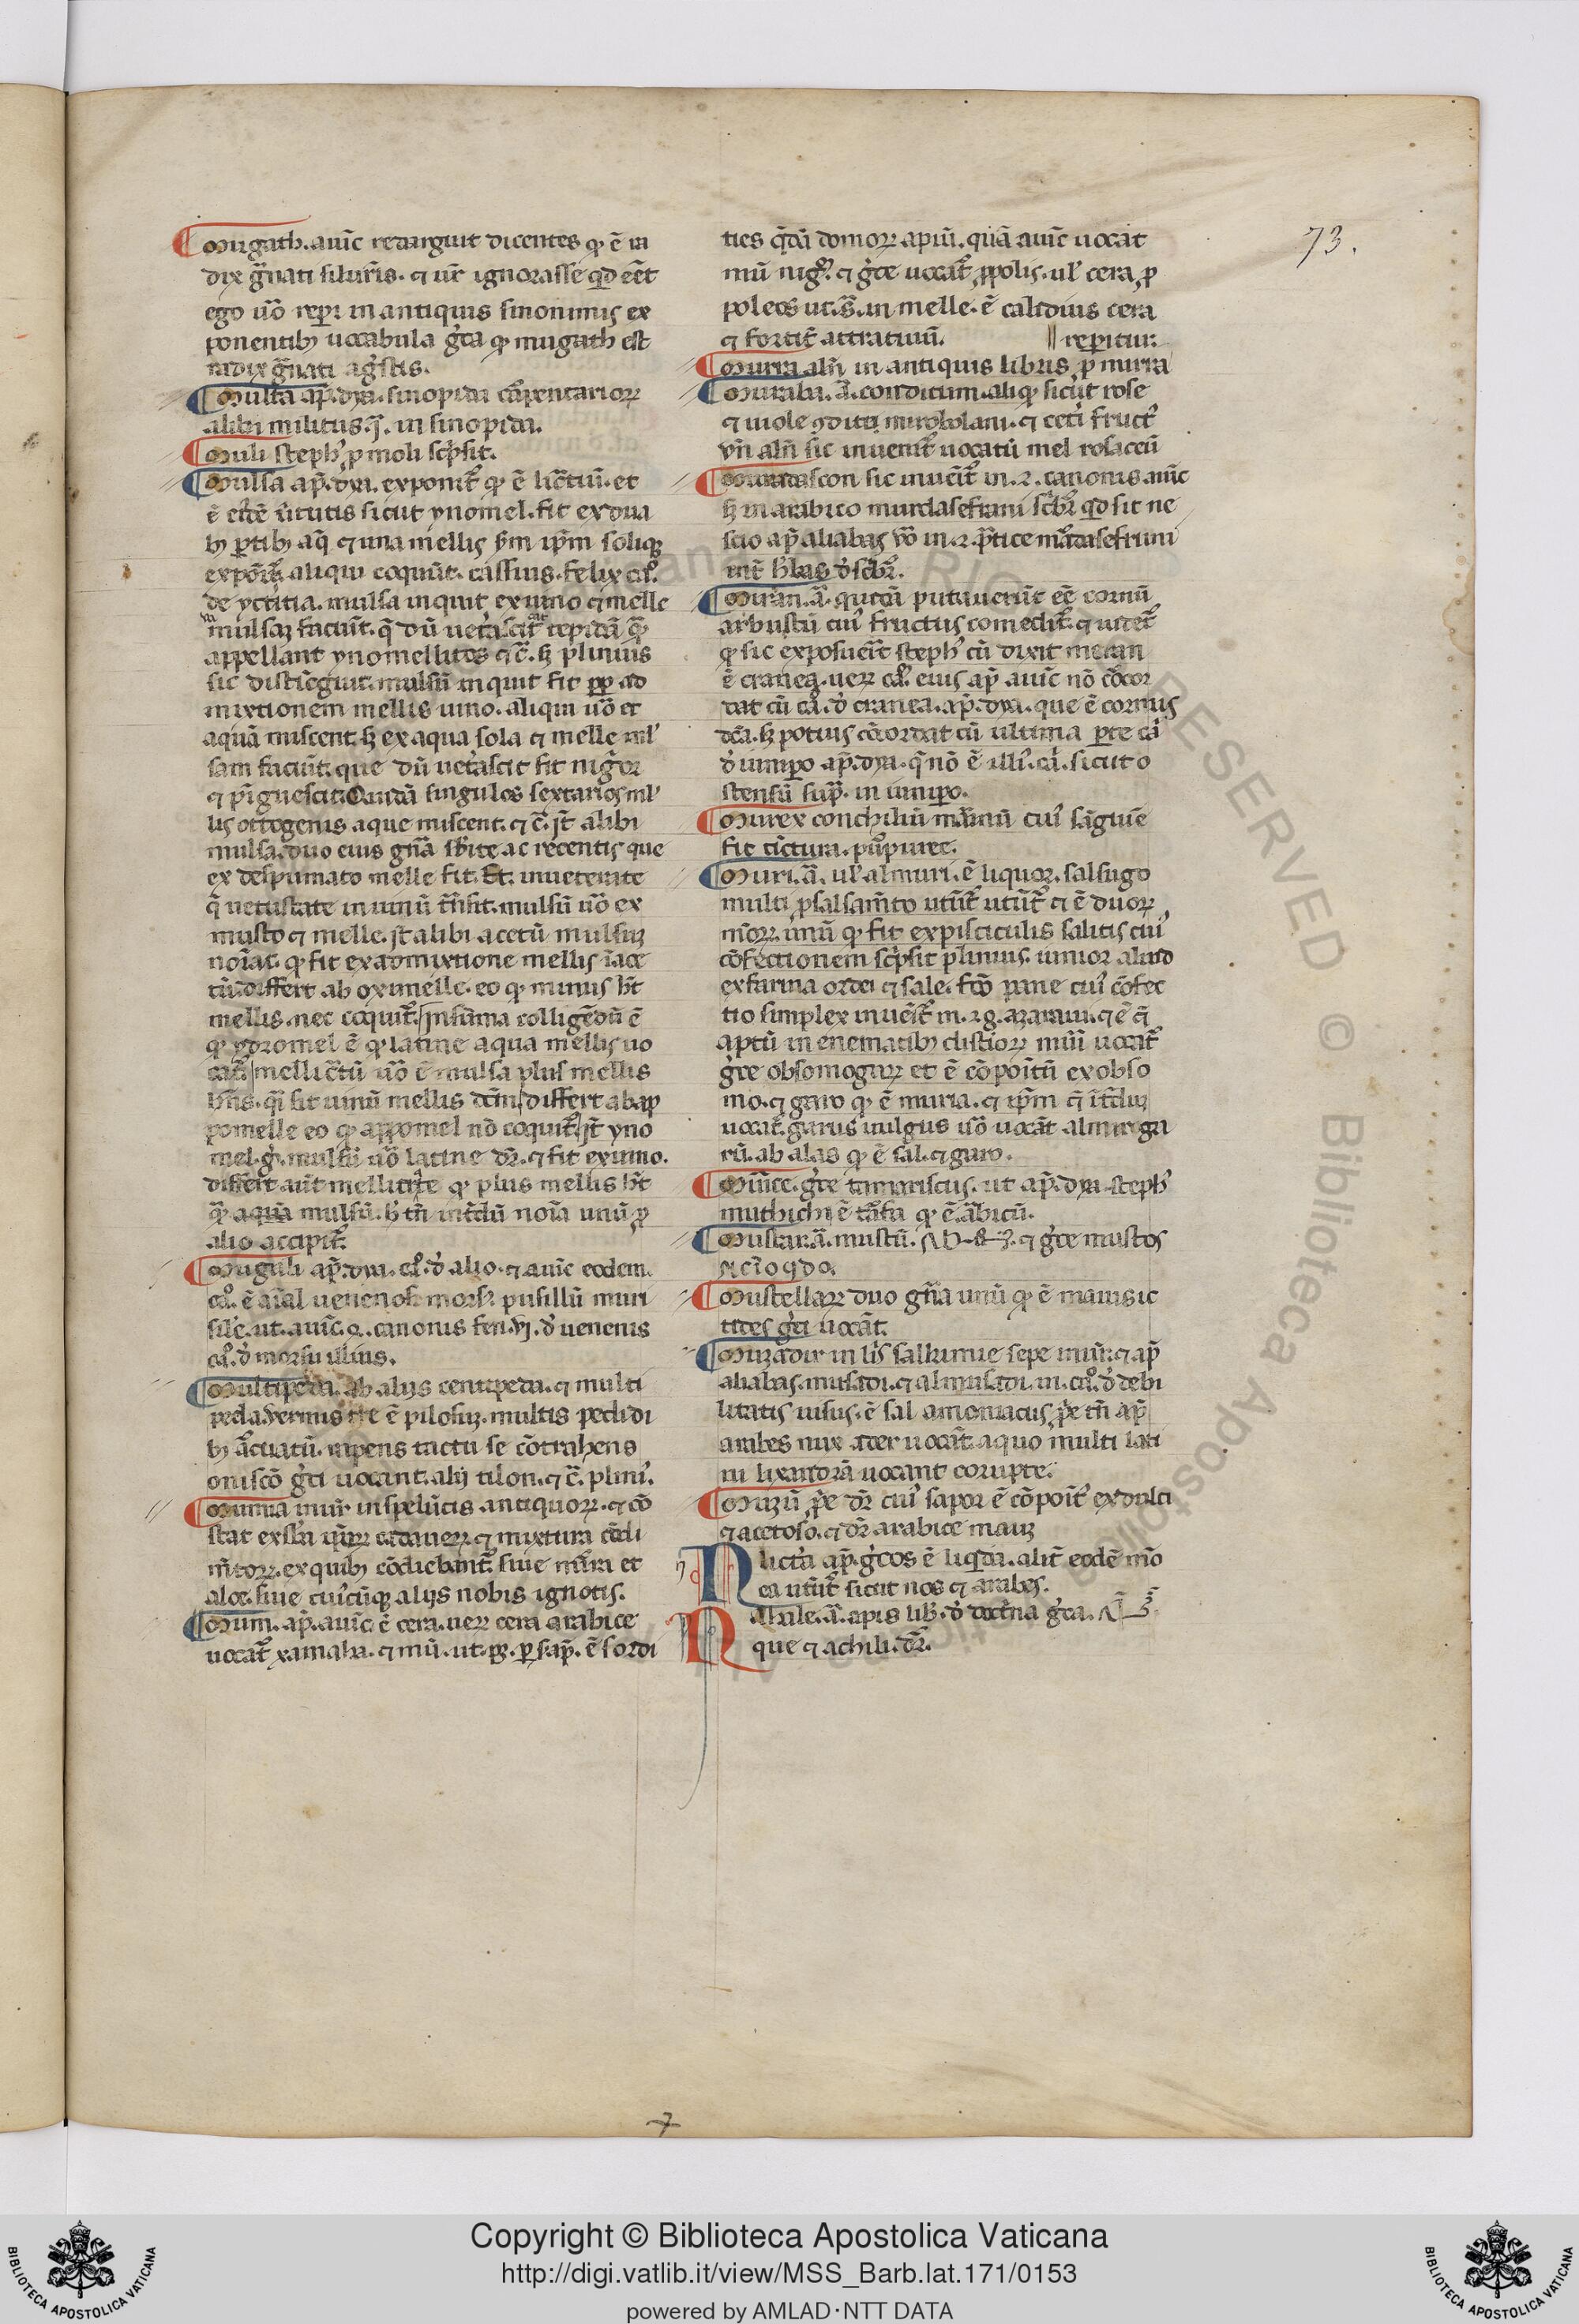 73.
Mugath. auic̄ redarguit dicentes ꝙ ē ra
dix g̃nati silur̃is. ⁊ ur̄ ignorasse qd eēt
ego uō rep̱i in antiquis sinonimis ex
ponentibꝫ uocabula gͥca ꝙ mugath est
radix g̃nati ag̃stis.
Multa ap̄. dya. sinopida carpentarioꝝ
alibi militus. q̄. in sinopida.
Muli stephꝰ ꝓ moli scͥpsit.
Mulsa ap̄. dya. exponit᷑ ꝙ ē
ē ût̃utis sicut ynomel. fit ex dua
bꝫ ꝑtibꝫ aq̄ ⁊ una mellis ip̄m solūqꝫ
aliqui coquūt. cassius. felix caͦ.
de yctͥitia. mulsa inquit ex uino ⁊ melle
mulsaꝫ faciūt. q̄ dū tepidā
appellant ynomellites ⁊ c̄. ꝫ plinius
sic distīgūit. mulsū inquit fit ad
mixtionem mellis uino. aliqui uō et
aquā miscent. ꝫ ex aqua sola ⁊ melle ml̕
sam faciūt. que dū uet̕ascit fit nig̕or
⁊ pīguescit. Quidā singulos sextarios ml̕
lis octogenis aque miscent. ⁊ c̄. Jt̄ alibi
mulsa. duo eius gn̄a sb̕ite ac recentis que
ex despumato melle fit. Et. inueterate
q̄ uetustate in uinū t̄nsit. mulsū uō ex
musto ⁊ melle. Jt alibi acetū mulsuꝫ
noīat. ꝙ fit ex admixtione mellis ī ace
tū. differt ab oximelle. eo ꝙ minus hꝫt
mellis. nec coquit᷑. Jn sūma colligēdū ē
ꝙ ydromel ē ꝙ latine aqua mellis uo
cat᷑. mellicr̄tū uō ē mulsa plus mellis
hn̄s. qͥ sit uinū mellis dcm̄ differt ab ap
pomelle eo ꝙ appomel nō coquit᷑ Jt̄ yno
mel. gͥ. mulsū uō latine dr̄. ⁊ fit ex uino.
differt aut̄ mellicr̄te ꝙ plus mellis hꝫt
ꝙ̄ aqua mulsū. hͥ tn̄ int̕dū noīa unū ꝓ
alio accipit᷑.
Mugali ap̄. dya. caͦ. d̕ alio. ⁊ auic̄ eodem.
caͦ. ē aīal uenenosi morsꝰ pusillū muri
sile. ut. auic̄. canonis fen. vj. d̕ uenenis
caͦ. d̕ morsu illius.
Multipeda. ab alijs centupeda. ⁊ multi
peda. uermis t̕re ē pilosuꝫ. multis pedidi
bꝫ ācuatū. repens tactu se cōtrahens
oniscō gͥci uocant. alij tilon. ⁊ c̄. pliniꝰ.
Mumia inur̄ in spelūcis antiquoꝝ. ⁊ cō
stat ueteꝝ cadaueꝝ ⁊ mixtura cōdi
m̄toꝝ. ex quibꝫ cōdiebant᷑ siue mirra et
aloe. siue cuiꝰcūqꝫ alijs nobis ignotis.
Mum. ap̄. auic̄ ē cera. ueꝝ cera arabice
uocat᷑ xamaha. ⁊ mū. ut. pꝫ. ꝑ sap̄. ē sordi
ties q̄dā domoꝝ apiū. quā auic̄ uocat
mū nigꝝ. ⁊ gͥce uocat᷑ ꝓpolis. ul̕ cera ꝓ
poleos ut. s̄. in melle. ē calidius cera
⁊ fortit̕ attractiuū. ‖ repitur.
Murra aln̄ in antiquis libris ꝓ mirra
Muraba. ā. conditum. aliqꝫ sicut rose
⁊ uiole ꝯdite mirobolani. ⁊ cet̕i fructꝰ
vn̄ aln̄ sic inuenit᷑ uocatū mel rosaceū
Muradascon sic inueīt᷑ in. 2. canonis auic̄
ꝫ in arabico murdasefrani scͥbr̄ qd sit ne
scio ap̄ aliabas uō in. 2. pͣtice murdasefruni
int̄ h̕bas d̕scͥbr̄.
Muran. ā. quidā putauerūt eē cornū
arbustū cuiꝰ fructus comedit᷑. ⁊ uidet᷑
ꝙ sic exposuerīt stephꝰ cū dixit meran
ē cranea. ueꝝ caͦ. eius ap̄ auic̄ nō cōcor
dat cū caͦ. d̕ cranea. ap̄. dya. que ē cornus
dcā. ꝫ potius cōcordat cū ultima ꝑte cāͥ
d̕ iunipo ap̄. dya. q̄ nō ē illiꝰ. caͥ. sicut o
stensū supͣ. in iunipo.
Murex conchiliū marinū cuiꝰ sāguīe
fit tīctura. purpuree.
Muri. ā. ul̕ almuri. ē liquor. salsugo
multi ꝓ salsam̄to utūt᷑ ⁊ ē duoꝝ
m̄oꝝ. unū ꝙ fit ex pisciculis salitis cuiꝰ
cōfectionem scͥpsit plinius. iunior aliud
ex farina ordei ⁊ sale. fcō pane cuiꝰ cōfec
tio simplex inueīt᷑ in. 2 g. azaraui. ⁊ ē
aptū in enematibꝫ clisterioꝝ uocat᷑
gͥce obsomogaꝝ et ē cōpoītū ex obso
mo. ⁊ garo ꝙ ē muria. ⁊ ip̄m
uocāt. garus uulgus uō uocāt almuriga
rū. ab alas ꝙ ē sal. ⁊ garo.
Mirice. gͥce tamariscus. ut ap̄. dya. stephꝰ
muthichi ē tārafa ꝙ ē ārabicū.
Mustar. ā. mustū. ⁊ gͥce mustos
Mustellaꝝ duo gn̄a unū ꝙ ē maius ic
tides gͥci uocāt.
Muzadir in lib̕s salkmie sepe inur̄. ⁊ ap̄
aliabas. musadi. ⁊ almusadi. in. caͦ. d̕ debi
litatis uisus. ē sal armoniacus ꝓpe tn̄ ap̄
arabes nux ader uocat᷑. a quo multi lati
ni lixandrā uocant corupte.
Muzū ꝓpe dr̄ cuiꝰ sapor ē cōpoitꝰ ex dulci
⁊ acetoso. ⁊ dr̄ arabice mauz
Nlicta ap̄. gͥcos ē liqͥda. alit̕ eodē mō
ea utūt᷑ sicut nos ⁊ arabes.
Nahale. ā. apis lib̕. d̕ doctͥna gͥca.
que ⁊ achili. dr̄.
7
Copyright © Biblioteca Apostolica Vaticana
http://digi.vatlib.it/view/MSS_Barb.lat.171/0153
powered by AMLAD·NTT DATA
BIBLIOTECA APOSTOLICA VATICANA
BIBLIOTECA APOSTOLICA VATICANA